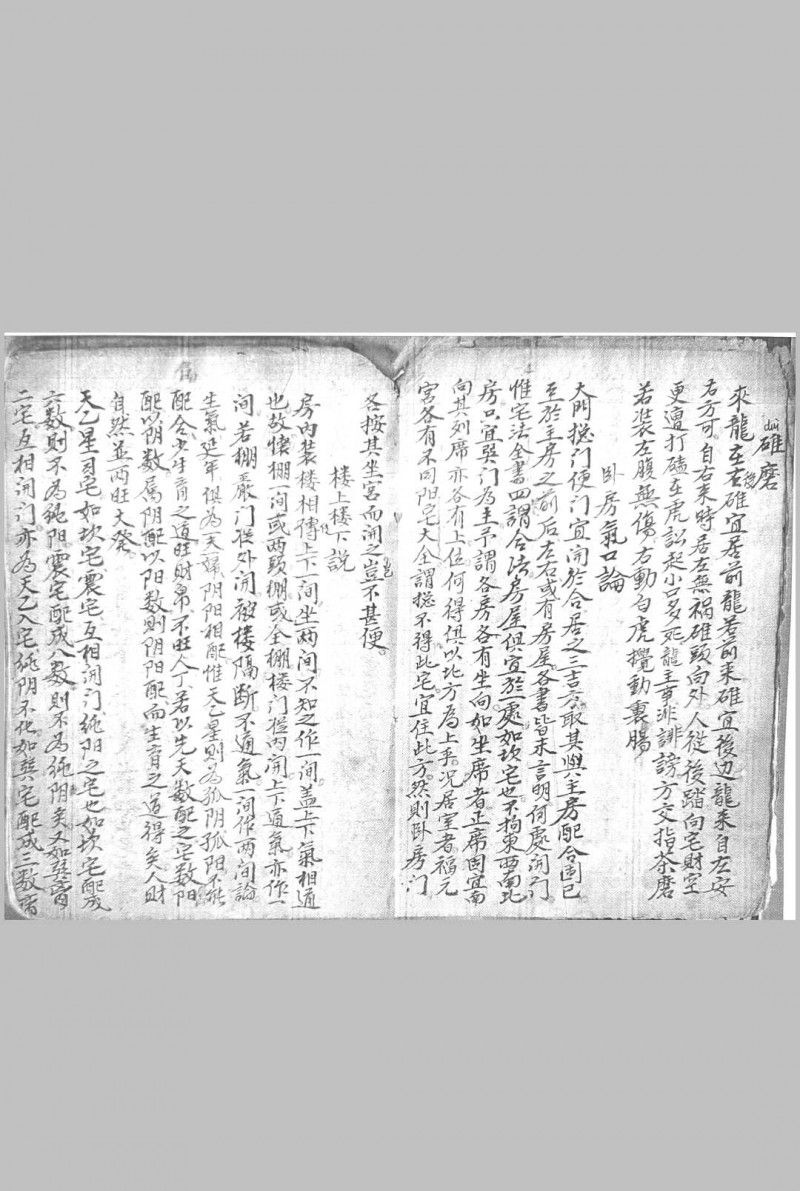 碓磨
來龍左右碓宜居前龍若前来碓宜後边龍来自左安
右方可自右来時居左無禍碓頭向外人從後踏向宅財空
更遭打磕在虎訟起小口多死龍主事非誹謗方交指茶磨
若装左腹無傷右動白虎攪動裏腸
卧房氣口論
大門捴门便门宜開於合居之三吉方取其與主房配合固已
至於主房之前后左右或有房屋各書皆未言明何處開门
惟宅法全書四謂合法房屋俱宜於一處如坎宅也不拘東西南北
房只宜巽门為主予謂各房各有坐向如坐席者正席固宜南
向其列席亦各有上位何得俱以北方為上乎况居室者福元
宫各有不同阳宅大全謂捴不得此宅宜住此方然則卧房门
各按其坐宫而開之豈不甚便
楼上楼下説
房内装楼相傳上下一间坐两间不知之作一间盖上下氣相通
也故懐棚一间或两頭棚或全棚楼门從内開上下通氣亦作一
间若棚嚴门從外開被楼隔断不通氣一间作两间論
生氣延年俱為夫婦阴阳相配惟天乙星則為孤阴孤阳不能
配合少生育之道旺財帛不旺人丁若以先天数配之宅数阳
配以阴数属阴配以阳数則阴阳配而生育之道得矣人財
自然並两旺大發
天乙星到宅如坎宅震宅互相開门純阳之宅也如坎宅配成
六数則不為純阳震宅配成八数則不為純阴矣又如巽离
二宅互相開门亦為天乙入宅純阴不化如巽宅配成三数离